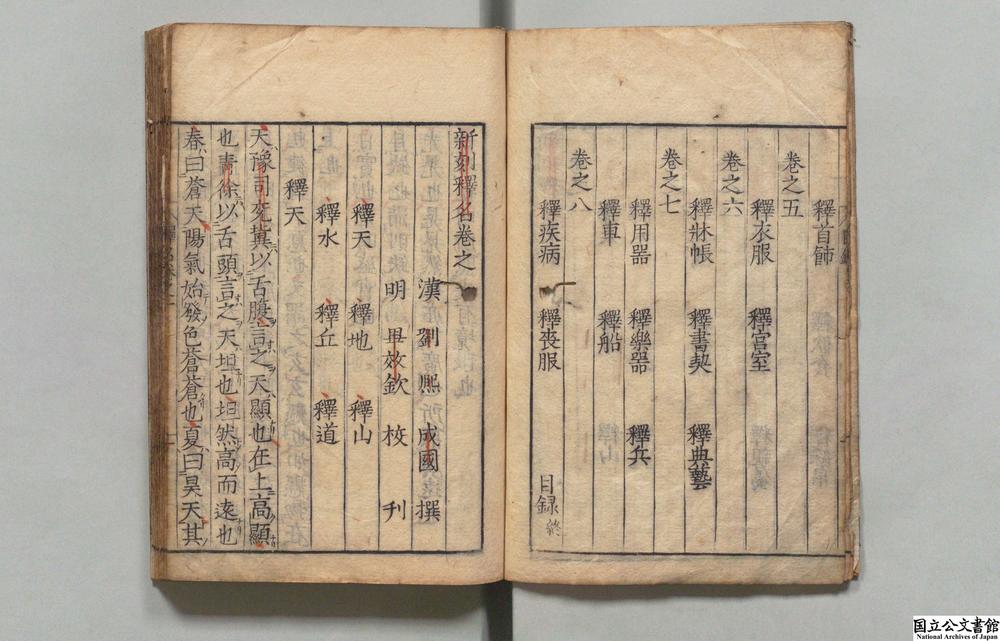 釋首飾
卷之五
釋衣服 釋宮室
卷之六
釋牀帳 釋書契 釋典藝
卷之七
釋用器 釋樂器 釋兵
釋車 釋船
卷之八
釋疾病 釋喪服
目録終
新刻釋名卷之一
漢 劉熙 成國 撰
明 畢效欽 校 刋
釋天 釋地 釋山
釋水 釋丘 釋道
釋天
天豫司兖冀以舌腹言之天顯也在上高顯
也青徐以舌頭言之天坦也坦然高而遠也
春曰蒼天陽氣始發色蒼蒼也夏曰昊天其
国立公文書館
National Archives of Japan